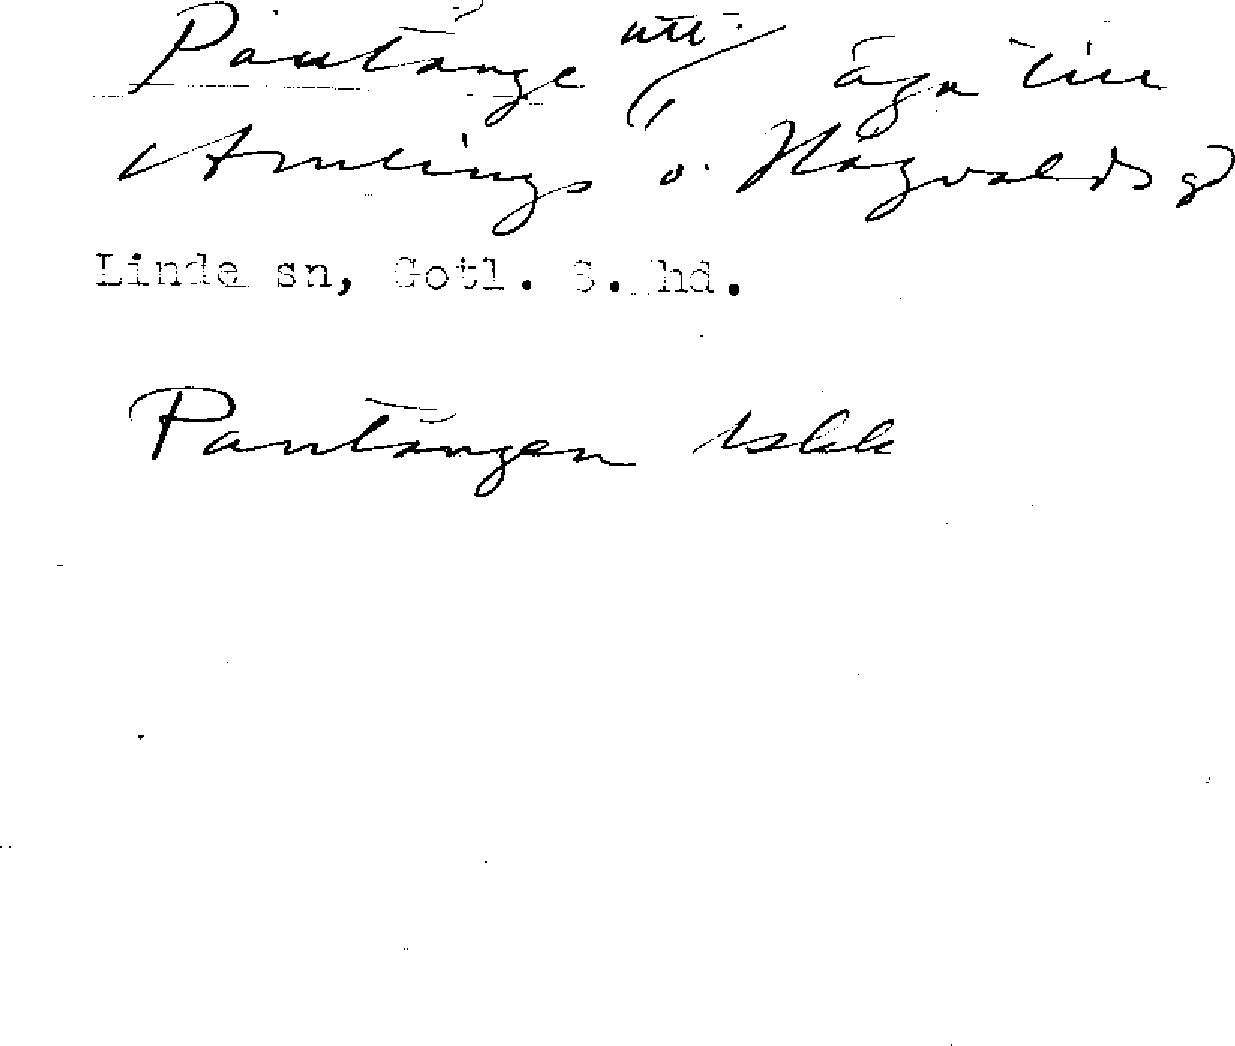 Pantänge utt. äga till
Amlings o. Hägvalds gd
Linde sn, Gotl. S. hd.
Pantängen